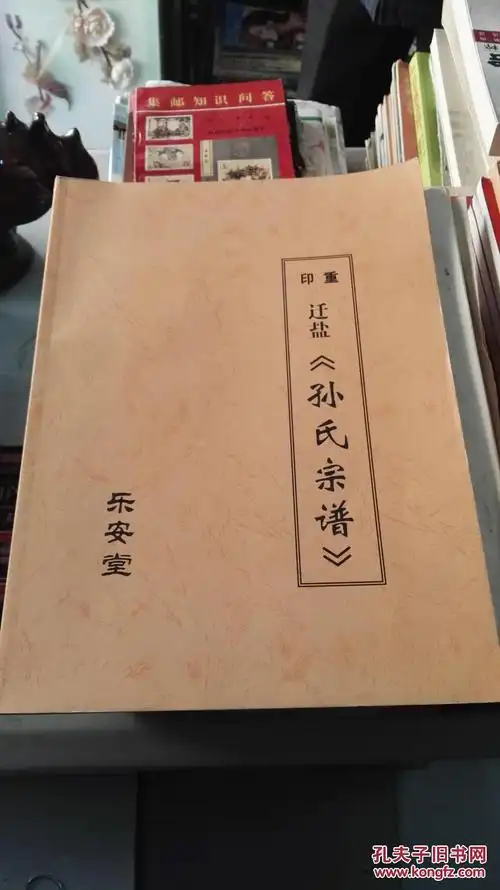 集邮知识问答
重印
迁盐
《孙氏宗谱》
乐安堂
孔夫子旧书网
www.kongfz.com